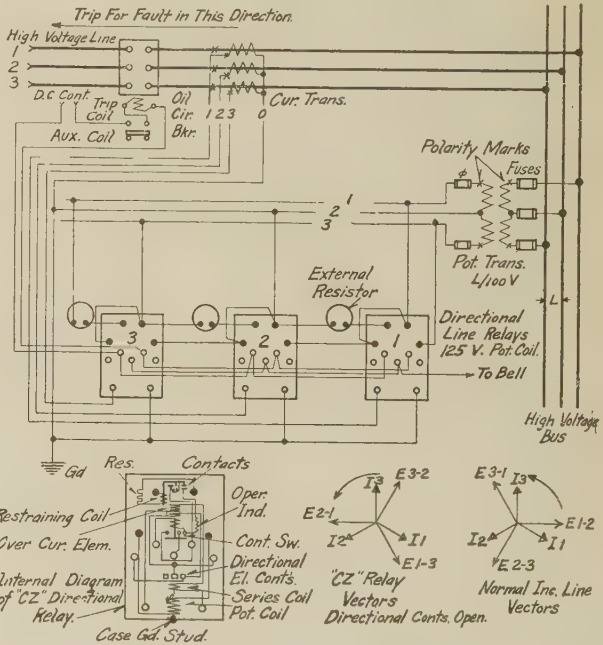 Trip For Fault in This Direction.
High Voltage Line
1
2
3
D.C Cont.
Trip
Coil
Aux. Coil
Oil
Cir.
Bkr.
1 2 3 0
Cur. Trans.
Polarity Marks
ϕ
Fuses
1
2
3
Pot. Trans.
L/100 V
L
External
Resistor
Directional
Line Relays
125 V. Pot. Coil.
3
2
1
To Bell
High Voltage
Bus
Gd
Res.
Contacts
Restraining Coil
Oper.
Ind.
Over Cur. Elem.
Cont. Sw.
Directional
El. Cont's.
Internal Diagram
of "CZ" Directional
Relay.
Series Coil
Pot. Coil
Case Gd. Stud.
E3-2
I3
E2-1
I2
I1
E1-3
"CZ" Relay
Vectors
Directional Conts. Open.
E3-1
I3
E1-2
I2
I1
E2-3
Normal Inc. Line
Vectors